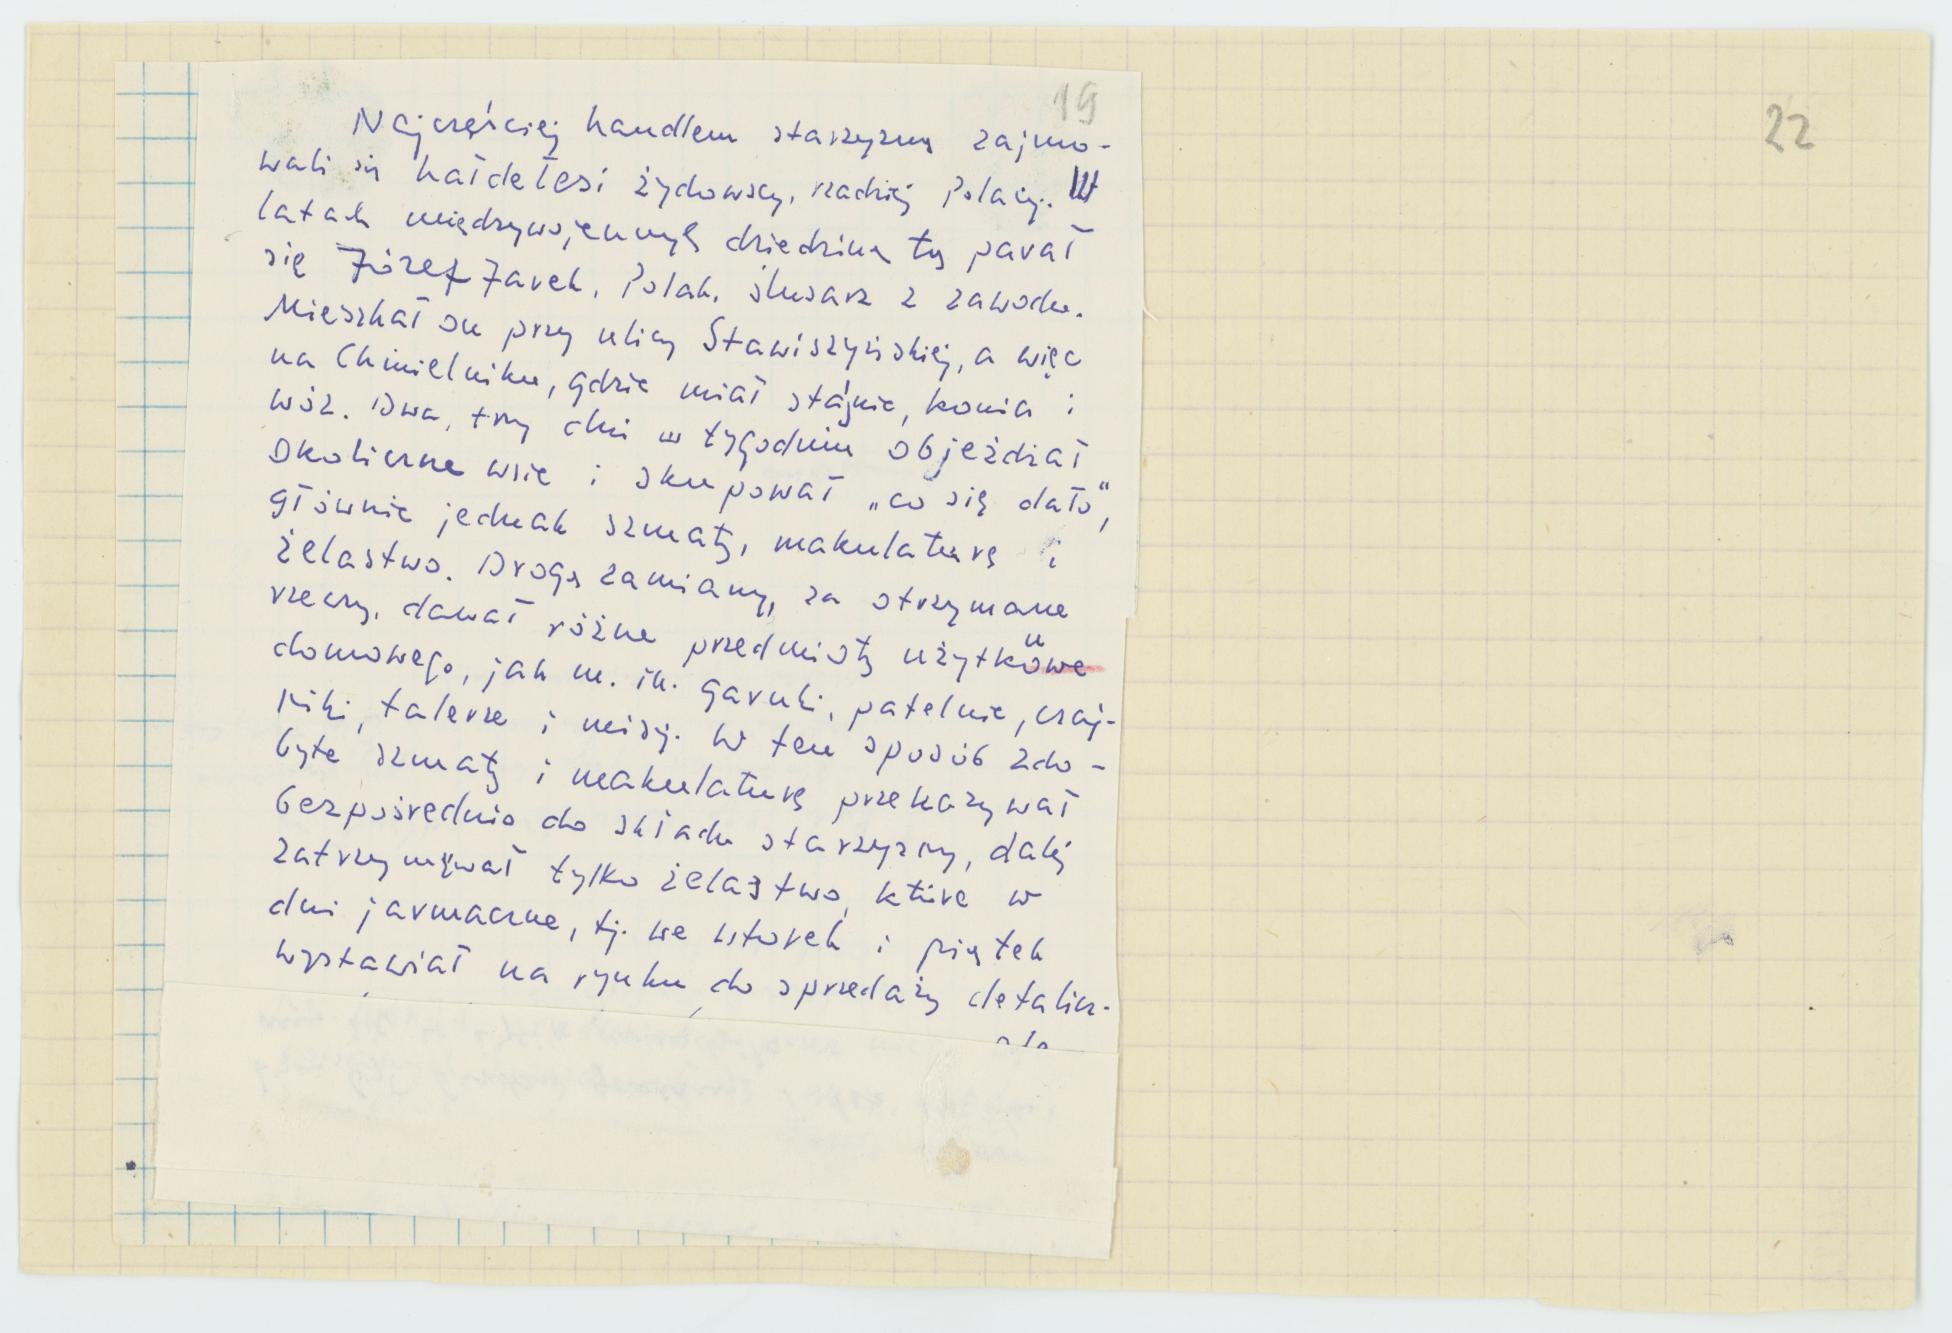 19
22
Najczęściej handlem starzyzną zajmo-
wali się hałdełesi żydowscy, rzadziej Polacy. W
latach międzywojennych dziedziną tą parał
się Józef Jarek, Polak, ślusarz z zawodu.
Mieszkał on przy ulicy Stawiszyńskiej, a więc
na Chmielniku, gdzie miał stajnię, konia i
wóz. Dwa, trzy dni w tygodniu objeżdżał
okoliczne wsie i skupował „co się dało",
głównie jednak szmaty, makulaturę i
żelastwo. Drogą zamiany, za otrzymane
rzeczy, dawał różne przedmioty użytkowe
domowego, jak m. in. garnki, patelnie, czaj-
niki, talerze i misy. W ten sposób zdo-
byte szmaty i makulaturę przekazywał
bezpośrednio do składu starzyzny, dalej
zatrzymywał tylko żelastwo, które w
dni jarmaczne, tj. we wtorek i piątek
wystawiał na rynku do sprzedaży detalicz-